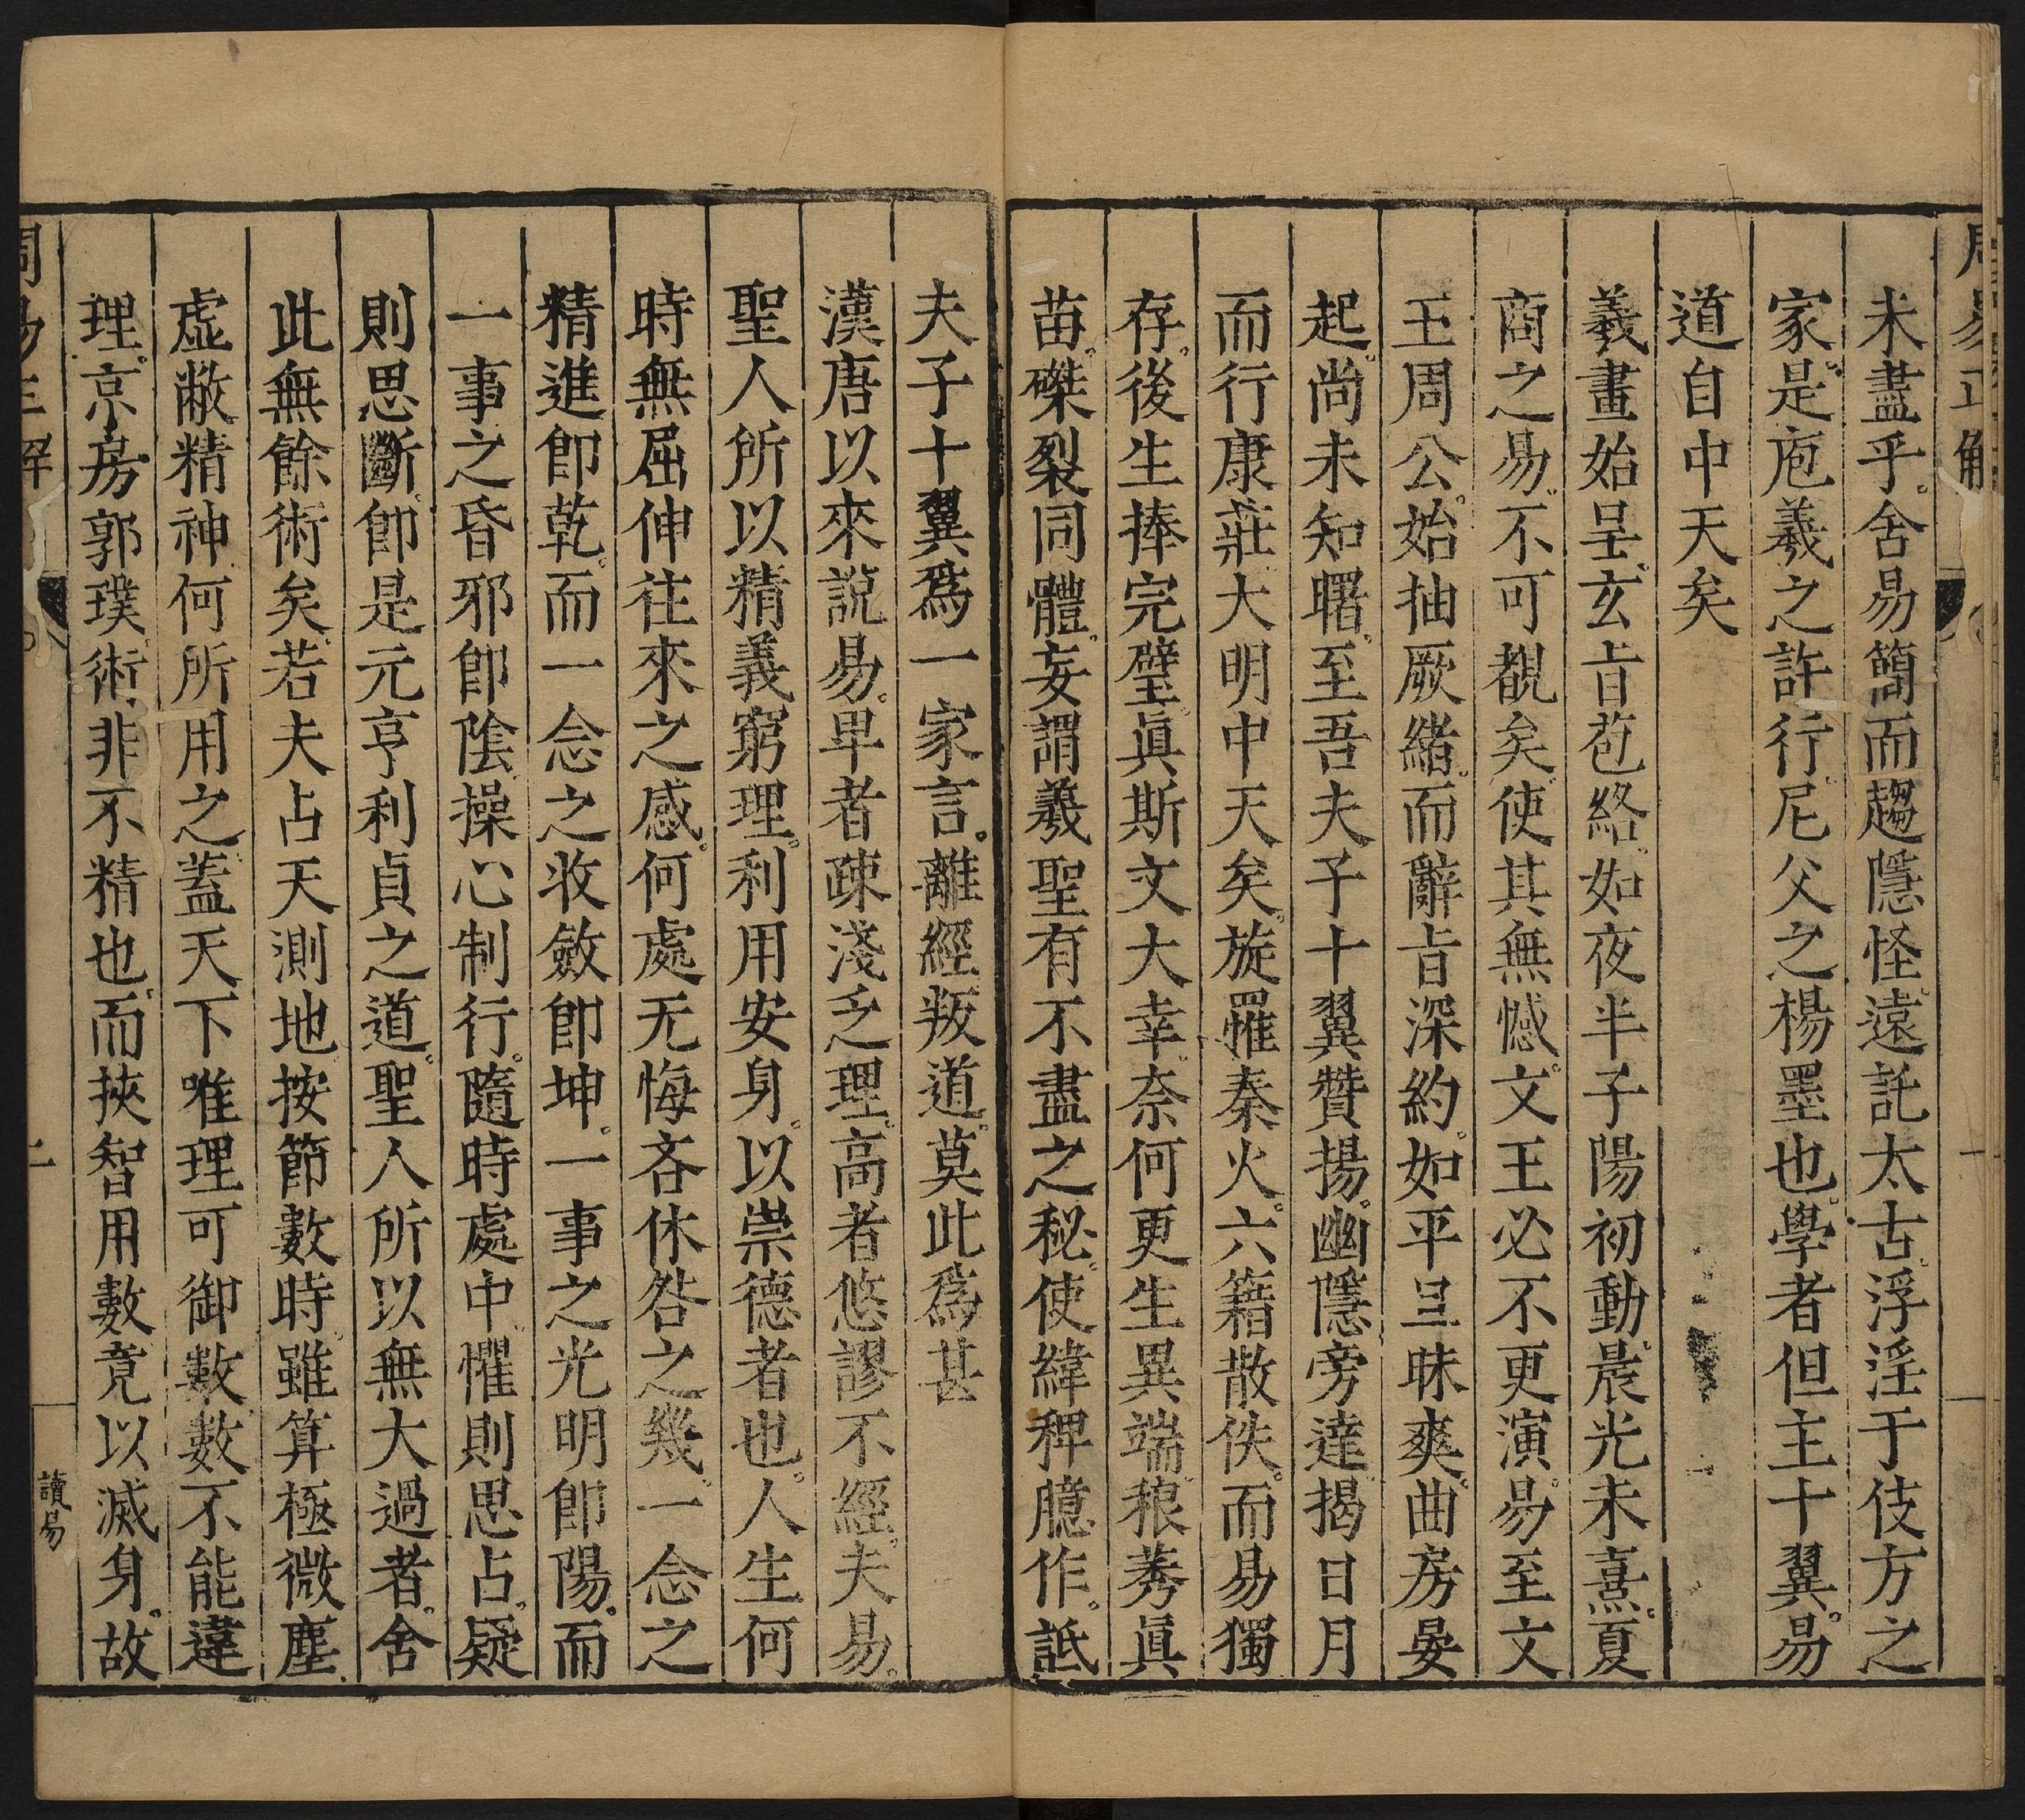 周易正解
一
未盡乎。舍易簡而趨隱怪。遠託太古。浮淫于伎方之
家。是庖羲之許行。尼父之楊墨也。學者但主十翼。易
道自中天矣
羲畫始呈。玄旨苞絡。如夜半子陽初動。晨光未熹。夏
商之易。不可覩矣。使其無憾。文王必不更演。易至文
王周公。始抽厥緒。而辭旨深約。如平旦昧爽。曲房晏
起。尚未知曙。至吾夫子十翼贊揚。幽隱旁達。揭日月
而行康莊。大明中天矣。旋罹秦火。六籍散佚。而易獨
存。後生捧完璧。眞斯文大幸。奈何更生異端。稂莠眞
苗。磔裂同體。妄謂羲聖有不盡之秘。使緯稗臆作。詆
夫子十翼爲一家言。離經叛道。莫此爲甚
漢唐以來說易。卑者疎淺乏理。高者悠謬不經。夫易。
聖人所以精義窮理。利用安身。以崇德者也。人生何
時無屈伸往來之感。何處无悔吝休咎之幾。一念之
精進卽乾。而一念之收斂卽坤。一事之光明卽陽。而
一事之昏邪卽陰。操心制行。隨時處中。懼則思占。疑
則思斷。卽是元亨利貞之道。聖人所以無大過者。舍
此無餘術矣。若夫占天測地。按節數時。雖算極微塵。
虛敝精神。何所用之。蓋天下唯理可御數。數不能違
理。京房郭璞。術非不精也。而挾智用數。竟以滅身。故
周易正解
二
讀易